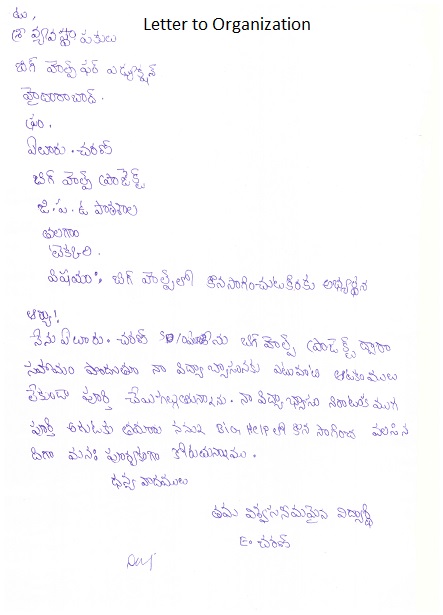 Letter to Organization
టు,
శ్రీ వ్యవస్థాపకులు
బిగ్ హెల్ప్ ఫర్ ఎడ్యుకేషన్
హైదరాబాద్.
ఫ్రం.
ఏలూరు. చరణ్
బిగ్ హెల్ప్ ప్రాజెక్ట్
జి. ప. ఉ పాఠశాల
తలగాం
టెక్కలి.
విషయం:- బిగ్ హెల్ప్ లో కొనసాగించుట కొరకు అభ్యర్థన
ఆర్యా!
నేను ఏలూరు. చరణ్ బిగ్ హెల్ప్ ప్రాజెక్ట్ ద్వారా
సహాయం పొందుతూ నా విద్యాభ్యాసంనకు ఎటువంటి ఆటంకములు
లేకుండా పూర్తి చేయగల్గుతున్నాను. నా విద్యాభ్యాసం నిరాటంకముగ
పూర్తి అగుటకు తమరు నన్ను Big Help లో కొన సాగించ వలసిన
దిగా మనః పూర్వకంగా కోరుచున్నాము.
ధన్య వాదములు
తమ విశ్వసనీయమైన విద్యార్థి
E. చరణ్